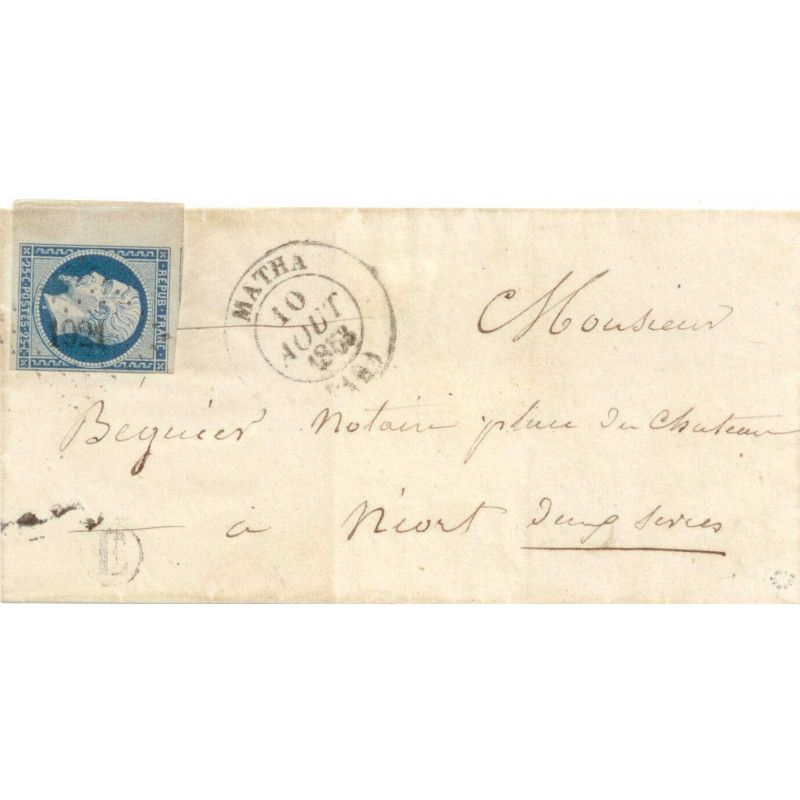 REPUB. FRANC.
25c POSTES 25c
1921
MATHA
10
AOUT
1853
(16)
Monsieur
Béguier Notaire place du Chateau
à Niort deux sevres
E